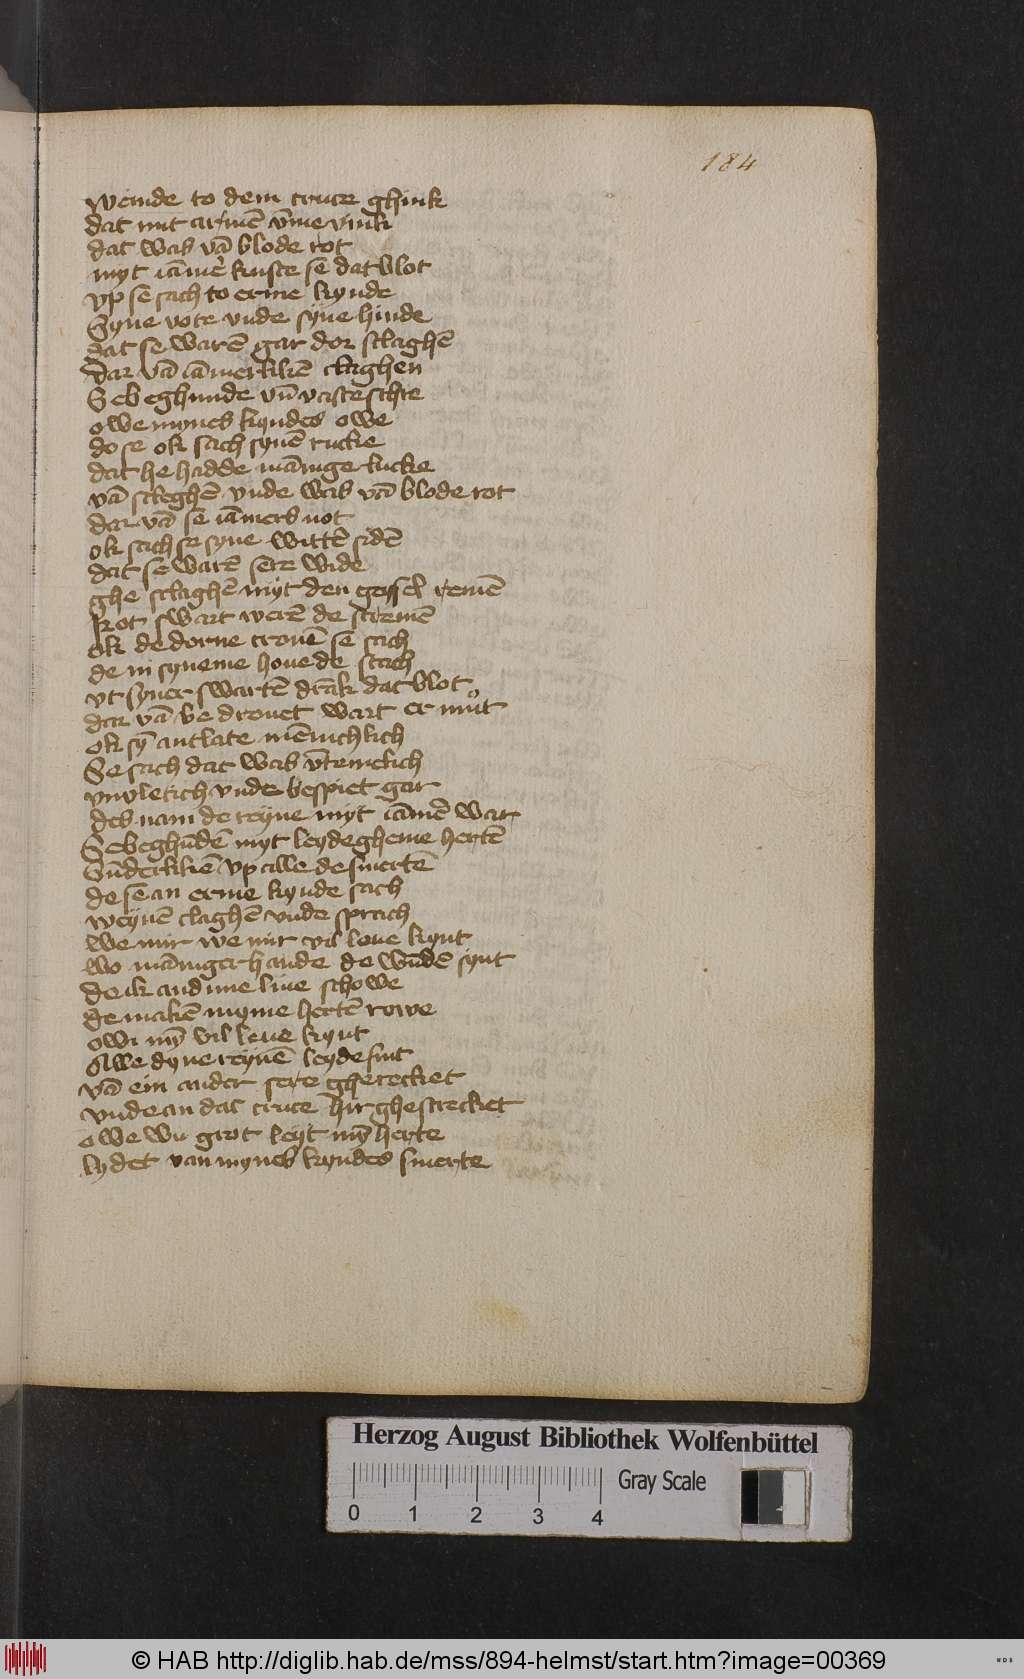 184
weinde to dem cruce ghink
dat mit armē v̄me vink
dat was vā blode rot
myt iām̄er kuste se dat blot
vp se sach to erme kynde
Syne vote vnde syne hinde
dat se warē gar dor slaghē
dar vā iāmerkliē claghen
Se beghunde vn̄ vaste schre
owe mynes kyndes owe
do se ok sach synē rucke
dat he hadde mānige lucke
vā sleghē vnde was vā blode rot
dar vā se iāmers not
ok sach se syne wittē sidē
dat se warē sere wide
ghe slaghē myt den geysel remē
Rot swart werē de stremē
ok de dorne cronē se sach
de in syneme houede stach
vt syner swartē drāk dat blot
dar vā be drouet wart er mut
ok sȳ antlate mēnichlich
Se sach dat was v̄temelich
vnvletich vnde bespiet gar
des nam de reyne myt iām̄e war
Se beghūdē myt leydegheme hertē
Sūderkliē vp alle de smertē
de se an erme kynde sach
weynē claghē vnde sprach
we mir we mir vil leue kynt
wo māniger hande de wūdē synt
de ik an dime liue schowe
de makē myme hertē rowe
owi mȳ vil leue kynt
Alle dyne reynē leyde sint
vā ein ander sere gherecket
vnde an dat cruce hir ghestrecket
owe wu grot leyt mȳ herte
lydet van mynes kyndes smerte
Herzog August Bibliothek Wolfenbüttel
Gray Scale
0 1 2 3 4
© HAB http://diglib.hab.de/mss/894-helmst/start.htm?image=00369